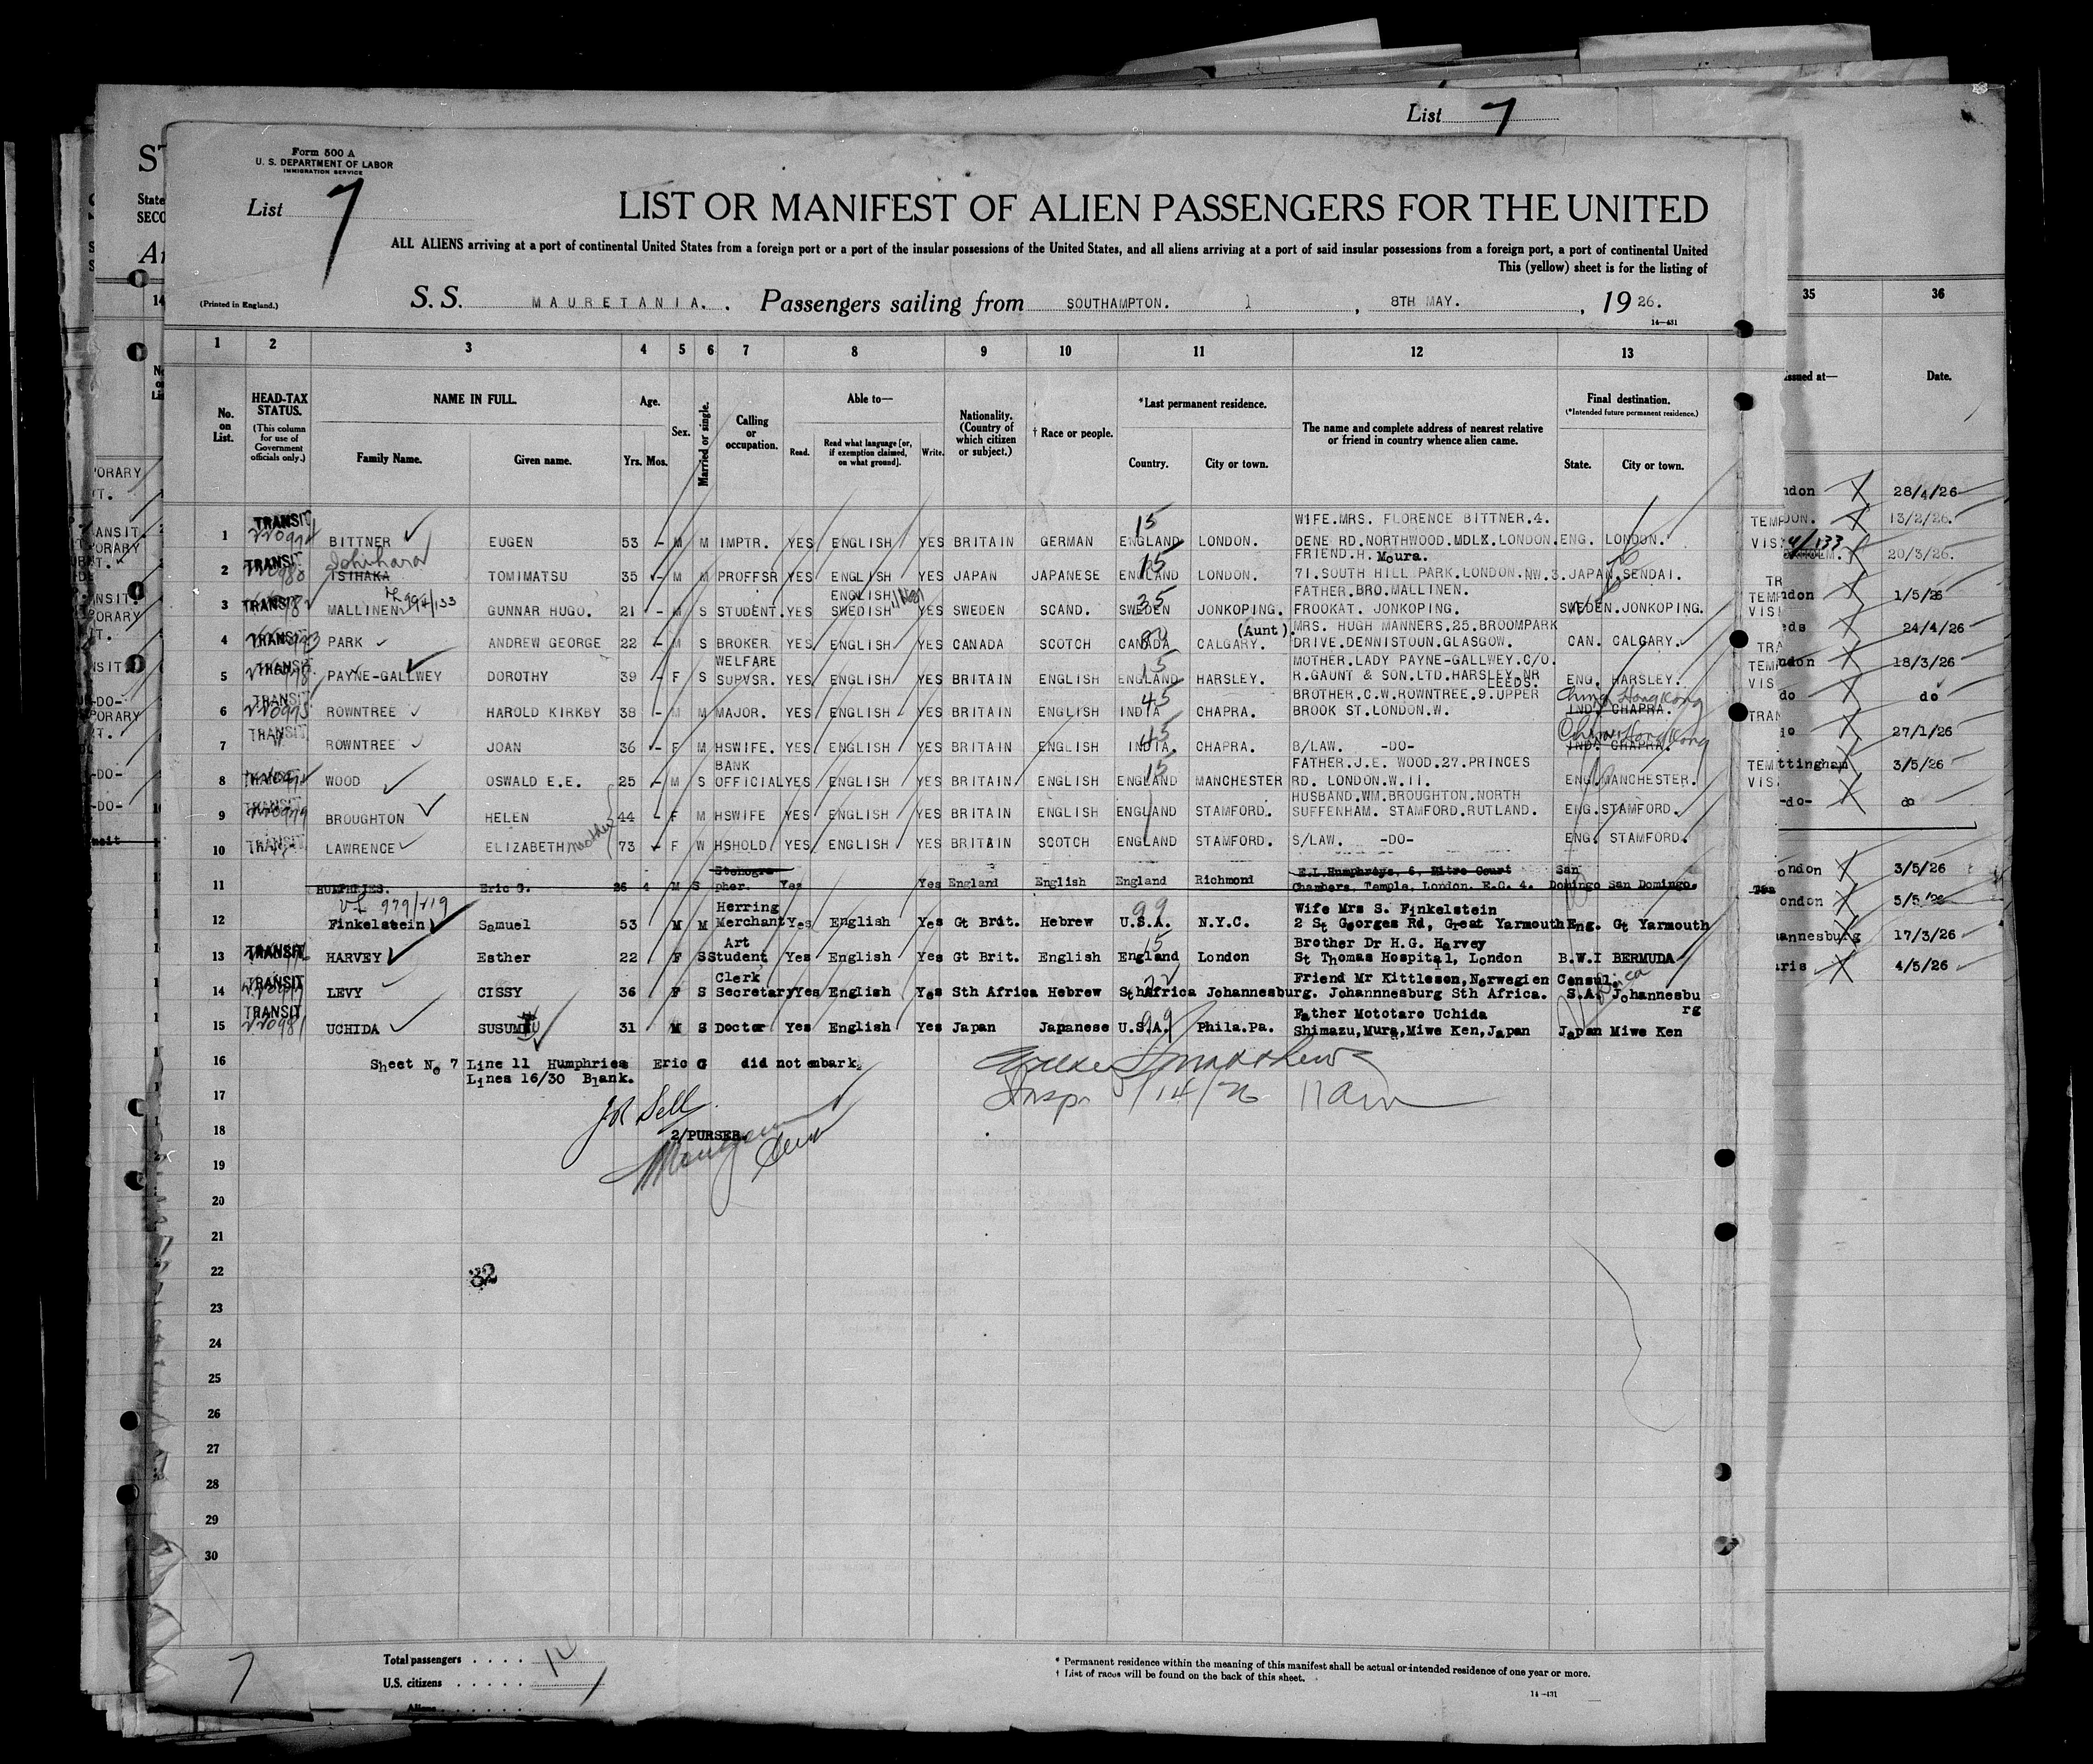 List 7
Form 500 A
U. S. DEPARTMENT OF LABOR
IMMIGRATION SERVICE
List 7
LIST OR MANIFEST OF ALIEN PASSENGERS FOR THE UNITED
ALL ALIENS arriving at a port of continental United States from a foreign port or a port of the insular possessions of the United States, and all aliens arriving at a port of said insular possessions from a foreign port, a port of continental United
This (yellow) sheet is for the listing of
(Printed in England.) S. S. MAURETANIA. Passengers sailing from SOUTHAMPTON. , 8TH MAY. , 19 26.
14—431
1 2 3 4 5 6 7 8 9 10 11 12 13 35 36
No. on List. HEAD-TAX STATUS. (This column for use of Government officials only.) NAME IN FULL. Family Name. Given name. Age. Yrs. Mos. Sex. Married or single. Calling or occupation. Able to— Read. Read what language [or, if exemption claimed, on what ground]. Write. Nationality. (Country of which citizen or subject.) † Race or people. *Last permanent residence. Country. City or town. The name and complete address of nearest relative or friend in country whence alien came. Final destination. (*Intended future permanent residence.) State. City or town. Issued at— Date.
1 TRANSIT BITTNER EUGEN 53 - M M IMPTR. YES ENGLISH YES BRITAIN GERMAN 15 ENGLAND LONDON. WIFE.MRS. FLORENCE BITTNER.4. DENE RD.NORTHWOOD.MDLX.LONDON. ENG. LONDON. 28/4/26
2 TRANSIT Ishihara TSIHAKA TOMIMATSU 35 - M M PROFFSR YES ENGLISH YES JAPAN JAPANESE 15 ENGLAND LONDON. FRIEND.H. Moura. 71.SOUTH HILL PARK.LONDON.NW.3. JAPAN.SENDAI. 13/2/26.
3 TRANSIT MALLINEN GUNNAR HUGO. 21 - M S STUDENT. YES ENGLISH SWEDISH YES SWEDEN SCAND. 35 SWEDEN JONKOPING. FATHER.BRO.MALLINEN. FROOKAT. JONKOPING. SWEDEN.JONKOPING. 20/3/26.
4 TRANSIT PARK ANDREW GEORGE 22 - M S BROKER YES ENGLISH YES CANADA SCOTCH CANADA CALGARY. (Aunt). MRS. HUGH MANNERS.25.BROOMPARK DRIVE.DENNISTOUN.GLASGOW. CAN. CALGARY. 1/5/26
5 TRANSIT PAYNE-GALLWEY DOROTHY 39 - F S WELFARE SUPVSR. YES ENGLISH YES BRITAIN ENGLISH 15 ENGLAND HARSLEY. MOTHER.LADY PAYNE-GALLWEY.C/O. R.GAUNT & SON.LTD.HARSLEY NR LEEDS. ENG. HARSLEY. 24/4/26
6 TRANSIT ROWNTREE HAROLD KIRKBY 38 - M M MAJOR. YES ENGLISH YES BRITAIN ENGLISH 45 INDIA CHAPRA. BROTHER.C.W.ROWNTREE.9.UPPER BROOK ST.LONDON.W. China Hongkong IND. CHAPRA. 18/3/26
7 TRANSIT ROWNTREE JOAN 36 - F M HSWIFE. YES ENGLISH YES BRITAIN ENGLISH 45 INDIA. CHAPRA. B/LAW. -DO- China Hongkong IND. CHAPRA. do
8 TRANSIT WOOD OSWALD E.E. 25 - M S BANK OFFICIAL YES ENGLISH YES BRITAIN ENGLISH 15 ENGLAND MANCHESTER FATHER.J.E. WOOD.27.PRINCES RD. LONDON.W.11. ENG.MANCHESTER. 27/1/26
9 TRANSIT BROUGHTON HELEN 44 - F M HSWIFE YES ENGLISH YES BRITAIN ENGLISH ENGLAND STAMFORD. HUSBAND.WM.BROUGHTON.NORTH SUFFENHAM. STAMFORD.RUTLAND. ENG.STAMFORD. 3/5/26
10 TRANSIT LAWRENCE ELIZABETH mother 73 - F W HSHOLD. YES ENGLISH YES BRITAIN SCOTCH ENGLAND STAMFORD. S/LAW. -DO- ENG. STAMFORD. do
11 HUMPHRIES. Eric G. 26 4 M S Stenographer. Yes Yes England English England Richmond E.L.Humphreys, 6, Mitre Court Chambers, Temple, London. E.C. 4. San Domingo San Domingo.
12 979/719 Finkelstein Samuel 53 M M Herring Merchant Yes English Yes Gt Brit. Hebrew 99 U.S.A. N.Y.C. Wife Mrs S. Finkelstein 2 St Georges Rd, Great Yarmouth Eng. Gt Yarmouth 3/5/26
13 TRANSIT HARVEY Esther 22 F S Art Student Yes English Yes Gt Brit. English 15 England London Brother Dr H.G. Harvey St Thomas Hospital, London B.W.I BERMUDA 5/5/26
14 TRANSIT LEVY CISSY 36 F S Clerk Secretary Yes English Yes Sth Africa Hebrew Sth Africa Johannesburg. Friend Mr Kittleson, Norwegien Consul. Johannnesburg Sth Africa. S.A. Johannesburg 17/3/26
15 TRANSIT UCHIDA SUSUMU 31 M S Doctor Yes English Yes Japan Japanese 99 U.S.A. Phila.Pa. Father Mototaro Uchida Shimazu, Mura, Miwe Ken, Japan Japan Miwe Ken 4/5/26
16 Sheet No 7 Line 11 Humphries Eric G did not embark.
Lines 16/30 Blank.
Insp. 5/14/26 11am
17
2/PURSER.
18
19
20
21
22
32
23
24
25
26
27
28
29
30
7
Total passengers
U.S. citizens
Aliens
* Permanent residence within the meaning of this manifest shall be actual or intended residence of one year or more.
† List of races will be found on the back of this sheet.
14—431